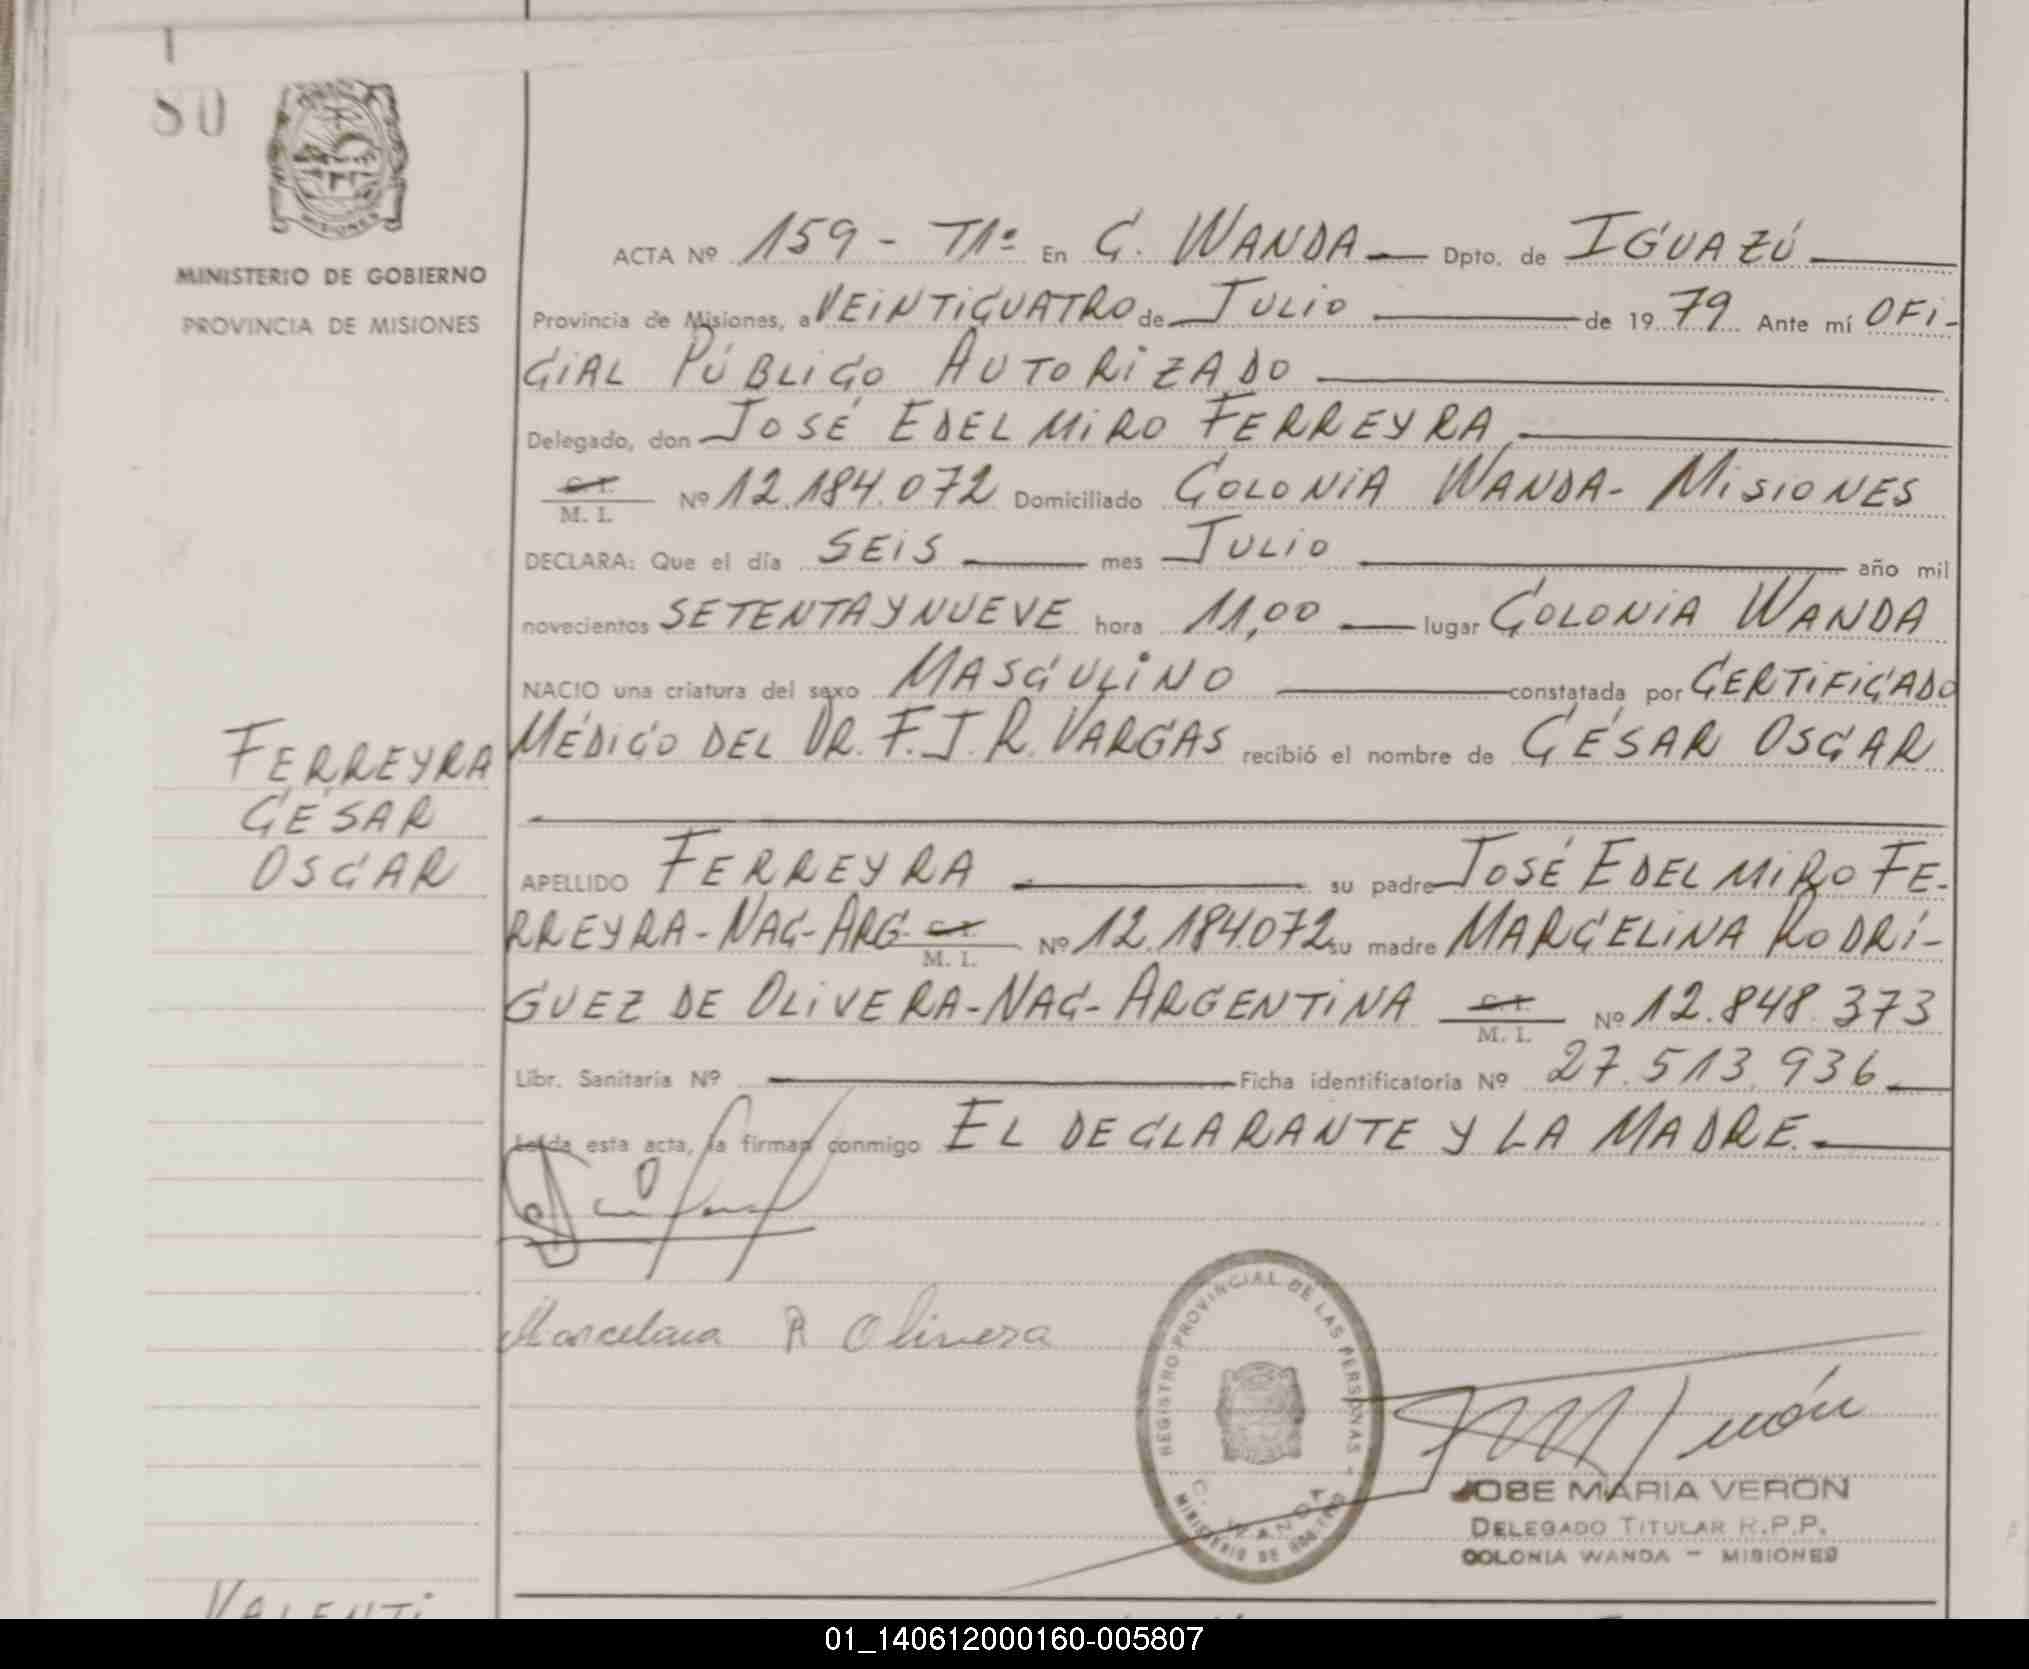 80
MISIONES
MINISTERIO DE GOBIERNO
PROVINCIA DE MISIONES
ACTA Nº 159 - T1º En C. WANDA Dpto. de IGUAZÚ
Provincia de Misiones, a VEINTICUATRO de JULIO de 1979 Ante mí OFI-
CIAL PÚBLICO AUTORIZADO
Delegado, don JOSÉ EDELMIRO FERREYRA
C. I.
M. I. Nº 12.184.072 Domiciliado COLONIA WANDA - MISIONES
DECLARA: Que el día SEIS mes JULIO año mil
novecientos SETENTA Y NUEVE hora 11,00 lugar COLONIA WANDA
NACIO una criatura del sexo MASCULINO constatada por CERTIFICADO
MÉDICO DEL DR. F. J. R. VARGAS recibió el nombre de CÉSAR OSCAR
FERREYRA
CÉSAR
OSCAR
APELLIDO FERREYRA su padre JOSÉ EDELMIRO FE-
RREYRA - NAC - ARG. C. I.
M. I. Nº 12.184.072 su madre MARCELINA RODRÍ-
GUEZ DE OLIVERA - NAC - ARGENTINA C. I.
M. I. Nº 12.848.373
Libr. Sanitaria Nº Ficha identificatoria Nº 27.513.936
Leída esta acta, la firman conmigo EL DECLARANTE Y LA MADRE.
Marcelina R Olivera
REGISTRO PROVINCIAL DE LAS PERSONAS -
C. WANDA
MINISTERIO DE GOBIERNO
JOSE MARIA VERON
DELEGADO TITULAR R.P.P.
COLONIA WANDA - MISIONES
VALENTI
01_140612000160-005807